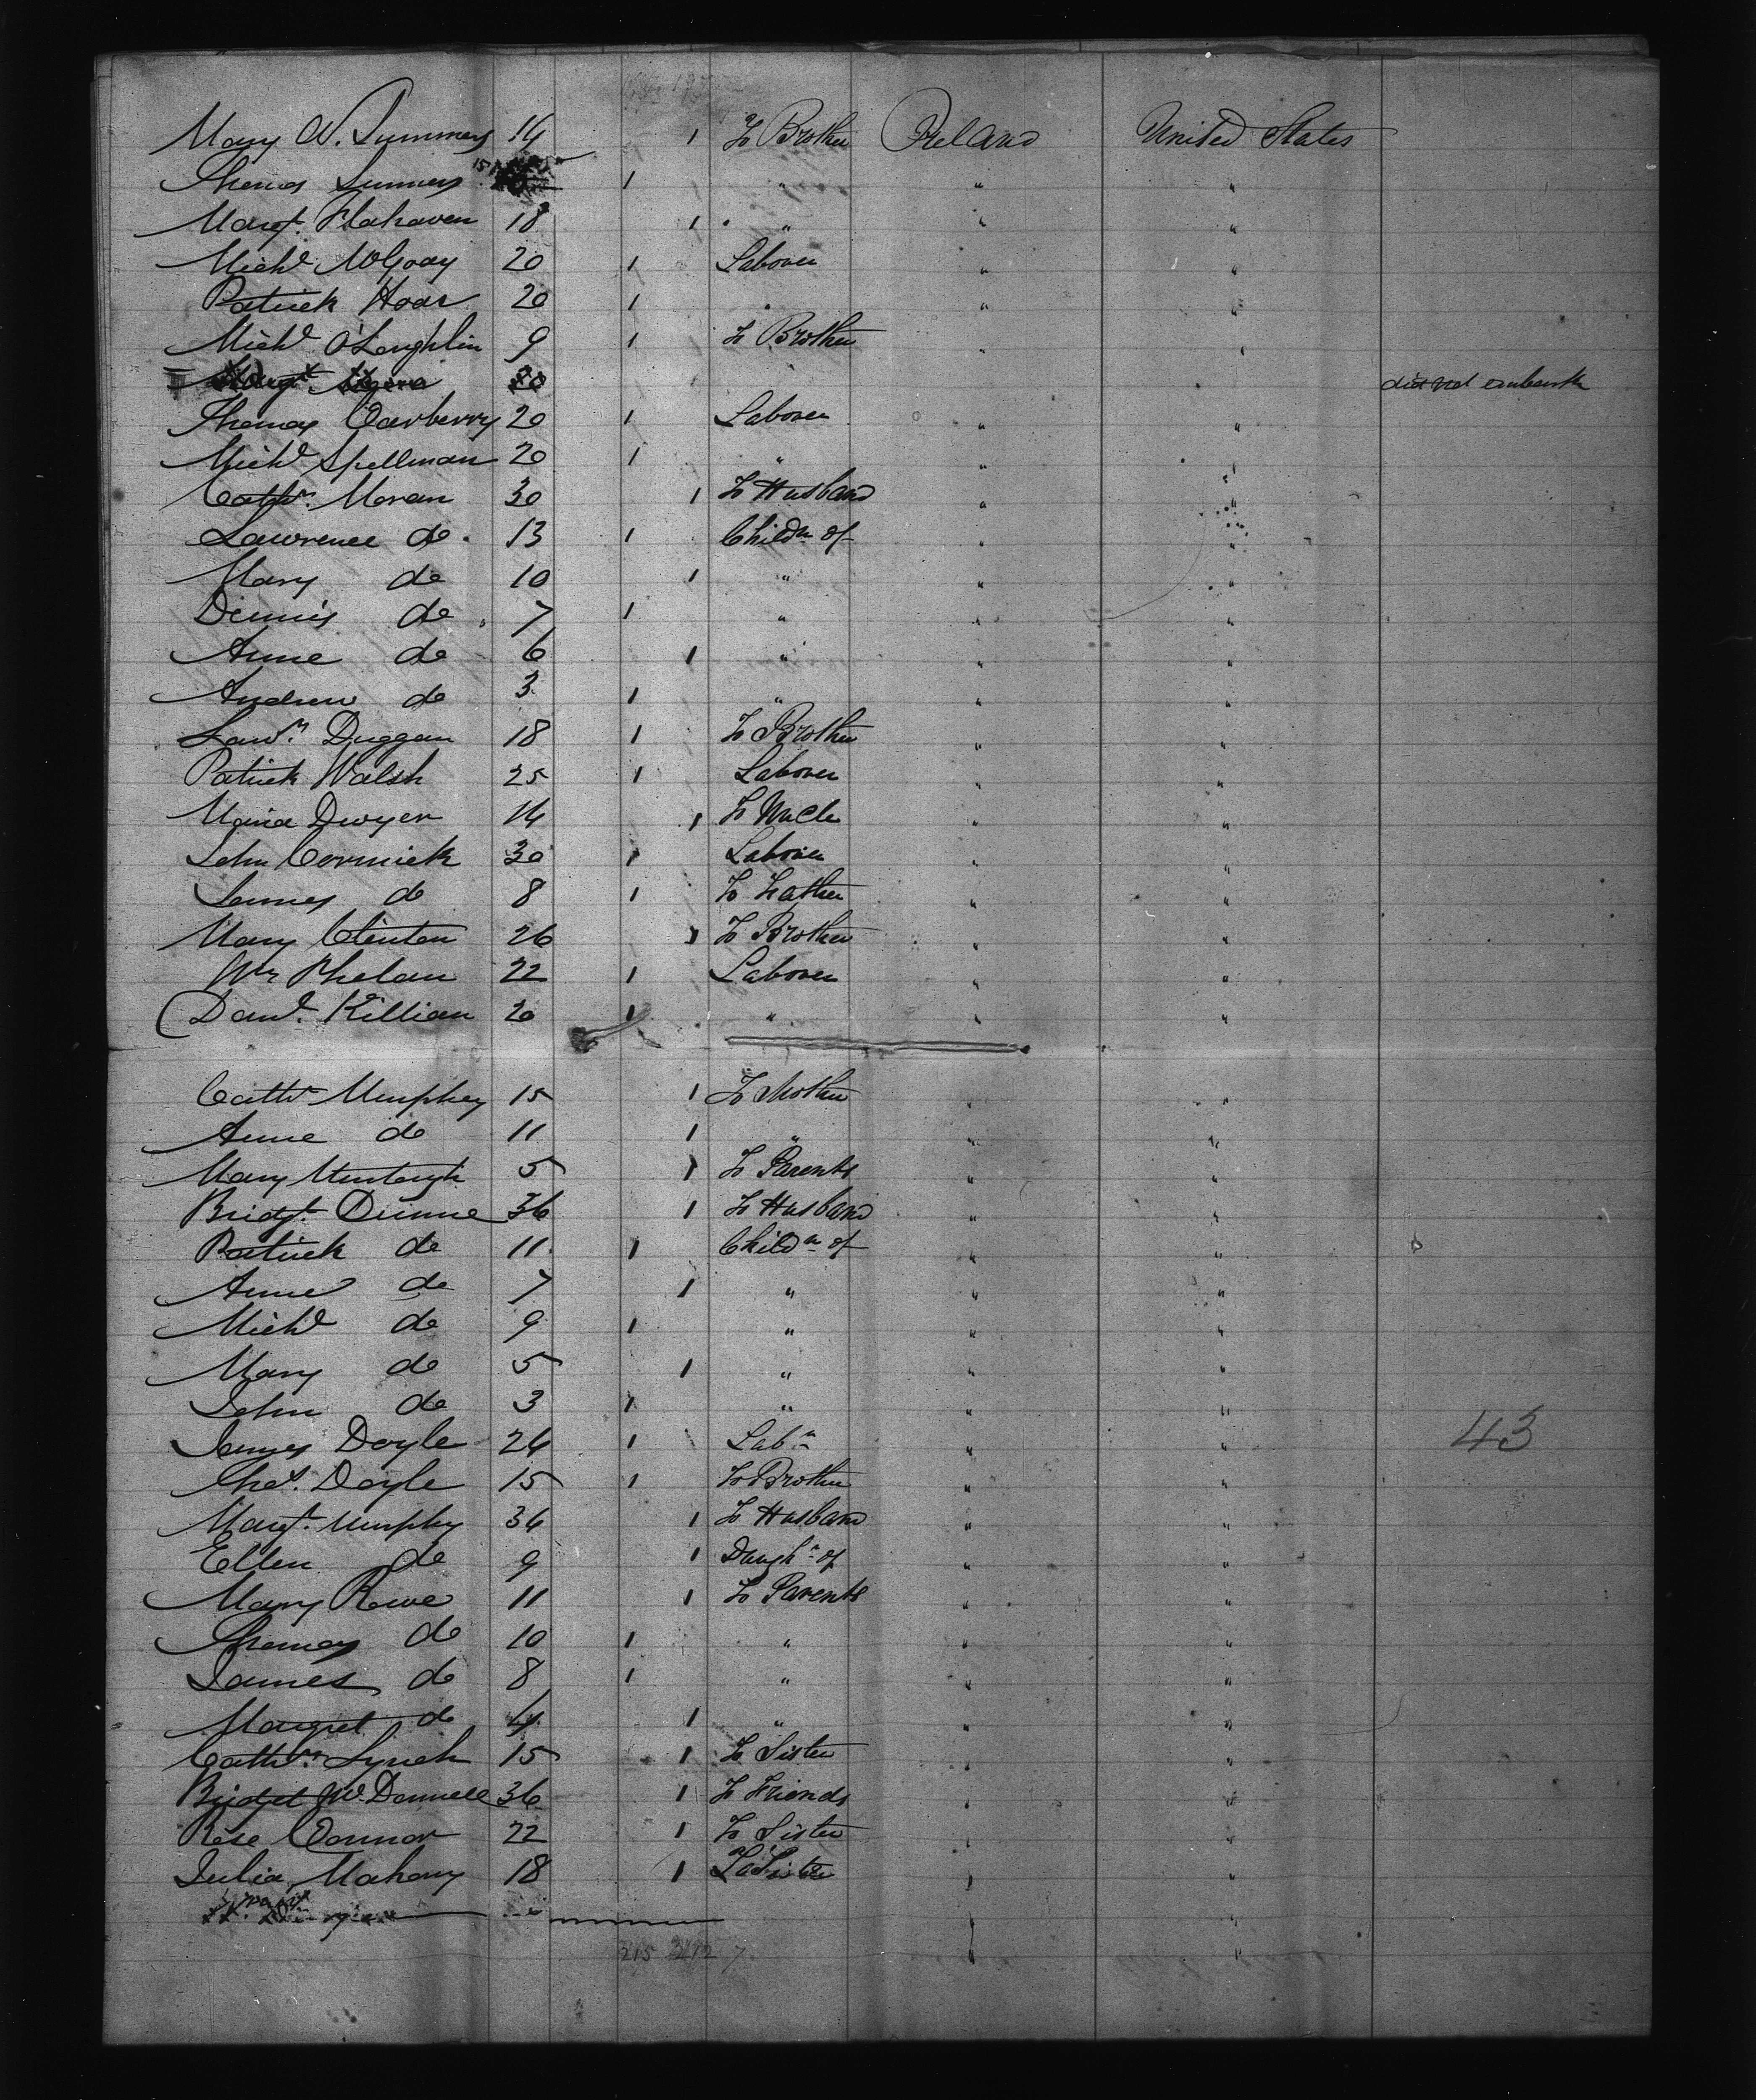 Mary W. Summers 14 1 To Brother Ireland United States
Thomas Summers 15 1 " " "
Margt. Flahaven 18 1 " " "
Michl McGoay 20 1 Laborer " "
Patrick Hoar 20 1 " " "
Michl O'Loughlin 9 1 To Brother " "
Margt. 20 did not embark
Thomas Carberry 20 1 Laborer " "
Michl Spellman 20 1 " " "
Cathn. Moran 30 1 To Husband " "
Lawrence do. 13 1 Childn of " "
Mary do 10 1 " " "
Dennis do 7 1 " " "
Anne do 6 1 " " "
Andrew do 3 1 " " "
Lawr. Duggan 18 1 To Brother " "
Patrick Walsh 25 1 Laborer " "
Maria Dwyer 14 1 To Uncle " "
John Cormick 30 1 Laborer " "
James do 8 1 To Father " "
Mary Clinton 26 1 To Brother " "
Wm Phelan 22 1 Laborer " "
Danl. Killian 20 1 " " "
Cathn Murphy 15 1 To Mother " "
Anne do 11 1 " " "
Mary Murtagh 5 1 To Parents " "
Bridgt. Dunne 36 1 To Husband " "
Patrick do 11 1 Childn of " "
Anne do 7 1 " " "
Michl do 9 1 " " "
Mary do 5 1 " " "
John do 3 1 " " "
James Doyle 24 1 Labr " " 43
Thos. Doyle 15 1 To Brother " "
Margt. Murphy 34 1 To Husband " "
Ellen do 9 1 Daughr of " "
Mary Rowe 11 1 To Parents " "
Thomas do 10 1 " " "
James do 8 1 " " "
Margret do 4 1 " " "
Cathn. Lynch 15 1 To Sister " "
Bridget McDonnell 36 1 To Friends " "
Rose Connor 22 1 To Sister " "
Julia Mahony 18 1 To Sister " "
215